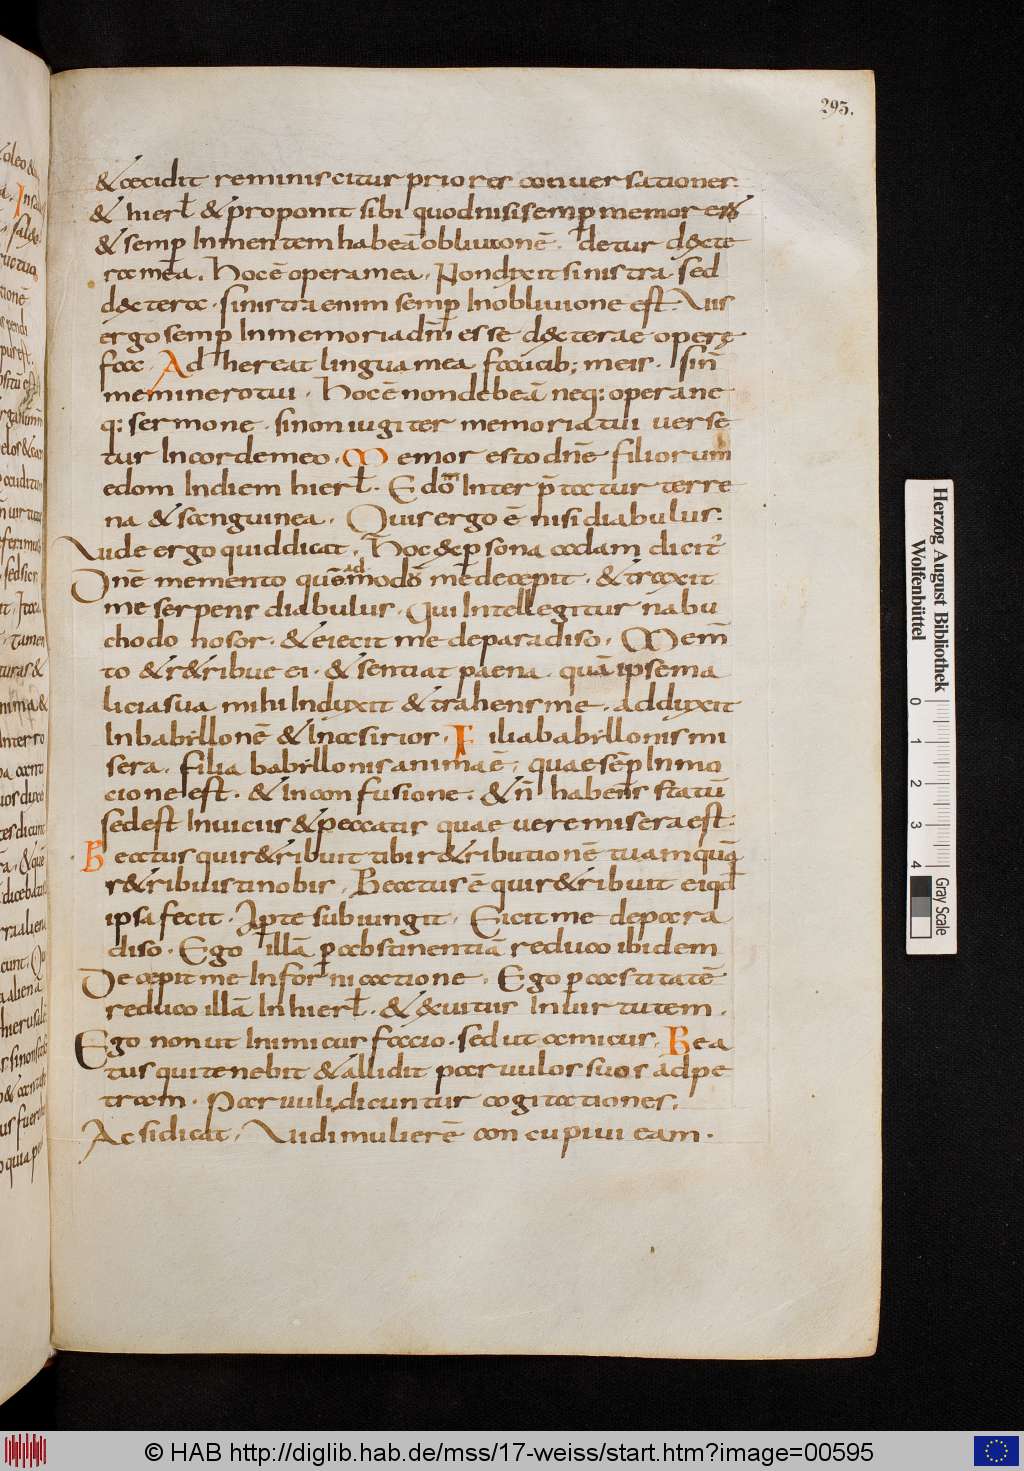 295.
& cecidit reminiscitur priores conuersationes.
& hierƚ & proponit sibi quod nisi semp̄ memor ess
& semp̄ In mentem habeā obliuionē. detur dexte
ra mēa. hoc ē opera mea. Non dixit sinistra sed
dextera. sinistra enim semp̄ In obliuione est. Vis
ergo semp̄ In memoria dn̄i esse dexterae operę
fac. Adhereat lingua mea faucib; meis. sin̄
meminero tui. hoc ē non debeā neq: opera ne
q: sermone. si non iugiter memoria tui uerse
tur In corde meo. Memor esto dn̄e filiorum
edom In diem hierƚ. Edom Interp̄tatur terre
na & sanguinea. Quis ergo ē nisi diabulus.
Vide ergo quid dicat. hoc & p̄sona adam dicit
Dn̄e memento quēadmodū me decepit. & traxit
me serpens diabulus. Qui Intellegitur nabu
chodonosor. & eiecit me de paradiso. Mem̄
to & r&ribue ei. & sentiat paena. quā ipse ma
licia sua mihi Induxit & trahens me. adduxit
In babyllonē & In asirios. Filia babyllonis mi
sera. filia babyllonis anima ē. quae sēp̄ In mo
cione est. & In confusione. & n̄ habens statū
sed est In uicus & peccatis quae uere misera est.
Beatus qui r&ribuit tibi r&ributionē tuam quā
r&ribuisti nobis. Beatus ē qui r&ribuit ei qd̄
ipsa fecit. Ipte subiungit. Eicit me de para
diso. Ego illā p̄ abstinentiā reduco ibidem
Decepit me In fornicatione. Ego p̄ castitatē
reduco illā In hierƚ. & exuitur In uirtutem.
Ego non ut Inimicus facio. sed ut amicus. Bea
tus qui tenebit & allidit paruulos suos ad pe
tram. Paruuli dicuntur cogitationes.
Ac si dicat. Vidi mulierē concupiui eam.
Herzog August Bibliothek
Wolfenbüttel
0 1 2 3 4
Gray Scale
© HAB http://diglib.hab.de/mss/17-weiss/start.htm?image=00595